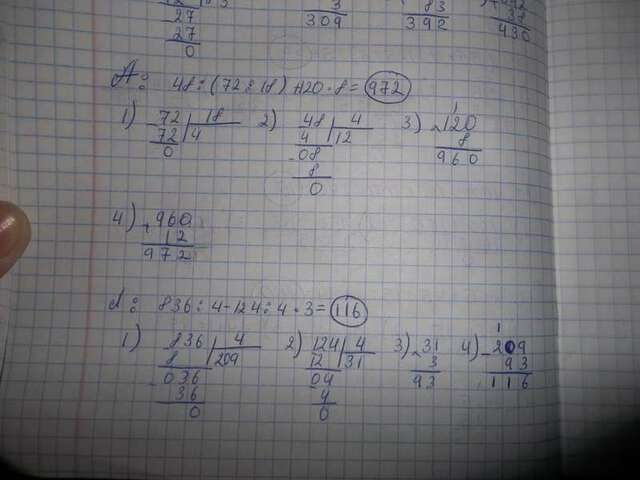 27
27
0
3
309
83
392
38
430
А: 48:(72:18)+120·8=972
1) 72 18
72 4
0
2) 48 4
4 12
08
8
0
3) 120
8
960
4) 960
12
972
836:4-124:4·3=116
1) 836 4
8 209
036
36
0
2) 124 4
12 31
04
4
0
3) 31
3
93
4) 209
93
116